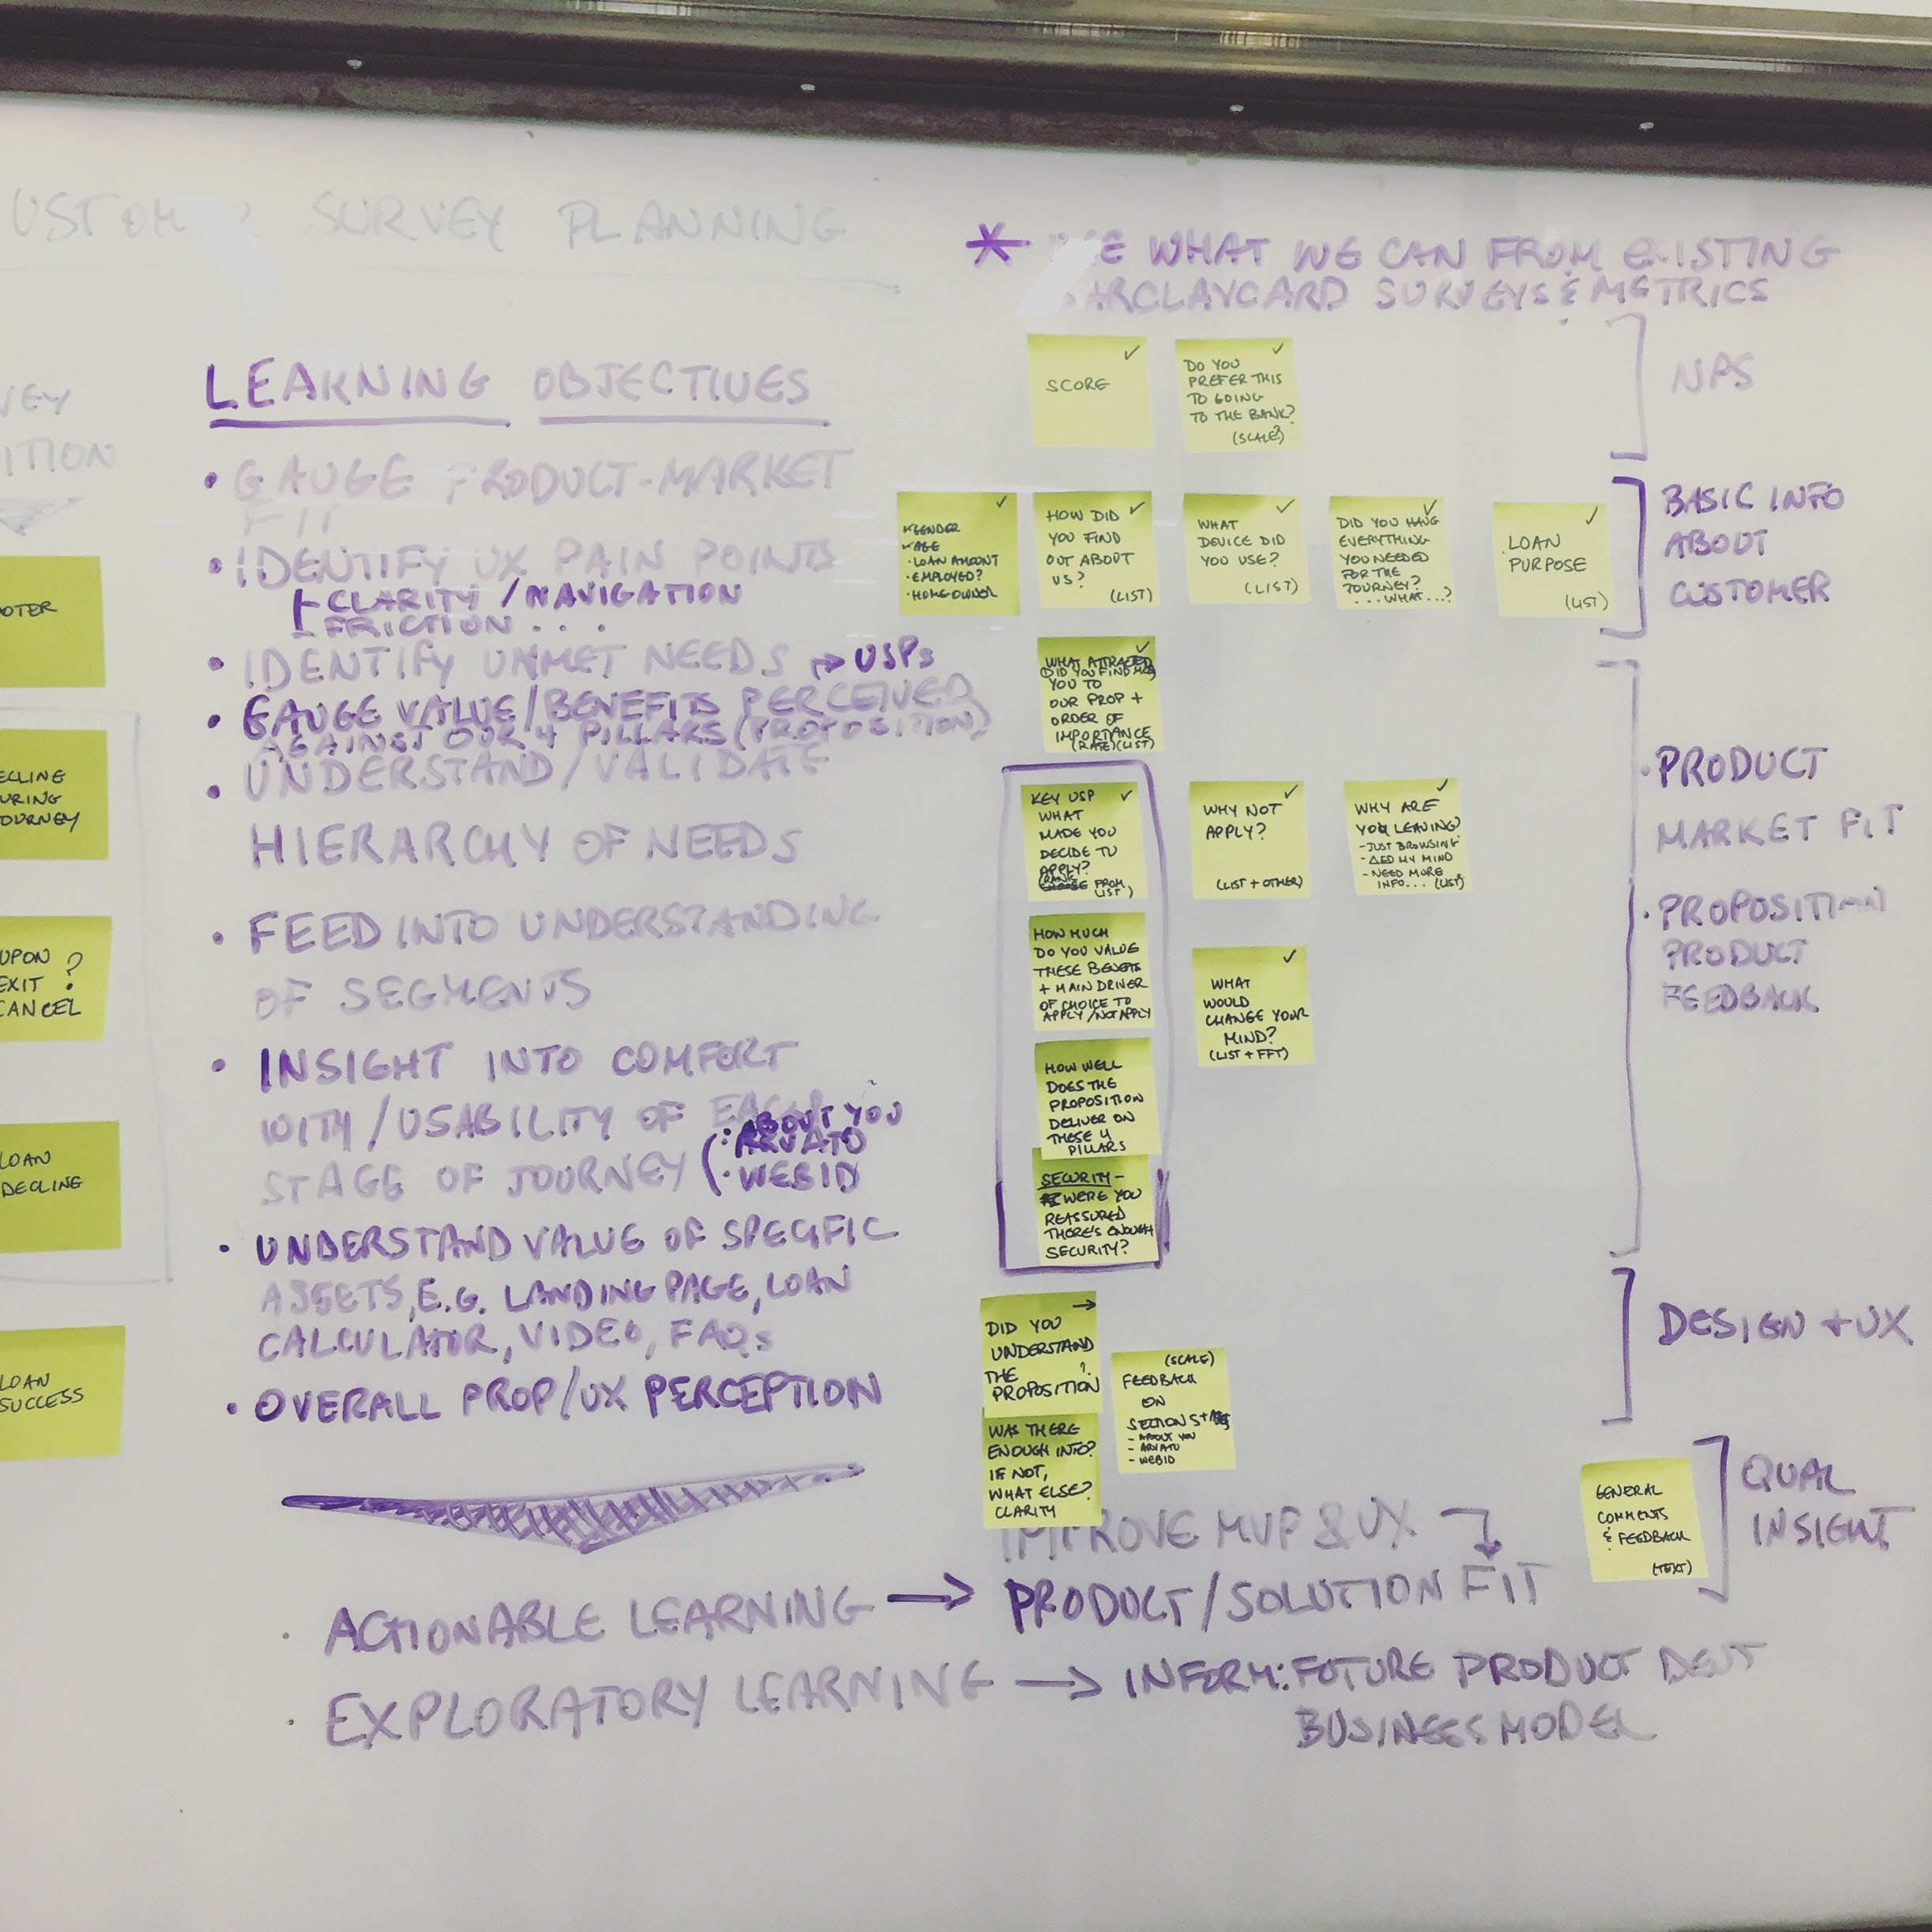 USTOMER SURVEY PLANNING
* USE WHAT WE CAN FROM EXISTING
BARCLAYCARD SURVEYS & METRICS
VEY
ITION
OTER
ECLINE
URING
OURNEY
UPON
EXIT ?
CANCEL
LOAN
DECLINE
LOAN
SUCCESS
LEARNING OBJECTIVES
• GAUGE PRODUCT-MARKET
FIT
• IDENTIFY UX PAIN POINTS
CLARITY / NAVIGATION
FRICTION . . .
• IDENTIFY UNMET NEEDS → USPs
• GAUGE VALUE/BENEFITS PERCEIVED
AGAINST OUR 4 PILLARS (PROPOSITION)
• UNDERSTAND/VALIDATE
HIERARCHY OF NEEDS
• FEED INTO UNDERSTANDING
OF SEGMENTS
• INSIGHT INTO COMFORT
WITH/USABILITY OF EACH
STAGE OF JOURNEY (
• ABOUT YOU
• ARVATO
• WEBID
• UNDERSTAND VALUE OF SPECIFIC
ASSETS, E.G. LANDING PAGE, LOAN
CALCULATOR, VIDEO, FAQs
• OVERALL PROP/UX PERCEPTION
SCORE ✓
✓
DO YOU
PREFER THIS
TO GOING
TO THE BANK?
(SCALE?)
NPS
✓
✓GENDER
✓AGE
• LOAN AMOUNT
• EMPLOYED?
• HOMEOWNER
HOW DID ✓
YOU FIND
OUT ABOUT
US?
(LIST)
✓
WHAT
DEVICE DID
YOU USE?
(LIST)
✓
DID YOU HAVE
EVERYTHING
YOU NEEDED
FOR THE
JOURNEY?
...WHAT...?
✓
LOAN
PURPOSE
(LIST)
BASIC INFO
ABOUT
CUSTOMER
✓
WHAT ATTRACTED
(DID YOU FIND
YOU TO
OUR PROP +
ORDER OF
IMPORTANCE
(RATE)(LIST)
KEY USP ✓
WHAT
MADE YOU
DECIDE TO
APPLY?
(RANK
CHOOSE FROM
LIST)
✓
WHY NOT
APPLY?
(LIST + OTHER)
✓
WHY ARE
YOU LEAVING?
- JUST BROWSING
- ΔED MY MIND
- NEED MORE
INFO... (LIST)
HOW MUCH
DO YOU VALUE
THESE BENEFITS
+ MAIN DRIVER
OF CHOICE TO
APPLY/NOT APPLY
✓
WHAT
WOULD
CHANGE YOUR
MIND?
(LIST + FFT)
HOW WELL
DOES THE
PROPOSITION
DELIVER ON
THESE 4
PILLARS
SECURITY -
WERE YOU
REASSURED
THERE'S ENOUGH
SECURITY?
• PRODUCT
MARKET FIT
• PROPOSITION
PRODUCT
FEEDBACK
→
DID YOU
UNDERSTAND
THE ?
PROPOSITION
WAS THERE
ENOUGH INFO?
IF NOT,
WHAT ELSE?
CLARITY
(SCALE)
FEEDBACK
ON
SECTIONS +
- ABOUT YOU
- ARVATO
- WEBID
DESIGN + UX
GENERAL
COMMENTS
& FEEDBACK
(TEXT)
QUAL
INSIGHT
IMPROVE MVP & UX
• ACTIONABLE LEARNING → PRODUCT/SOLUTION FIT
• EXPLORATORY LEARNING → INFORM: FUTURE PRODUCT DEV
BUSINESS MODEL